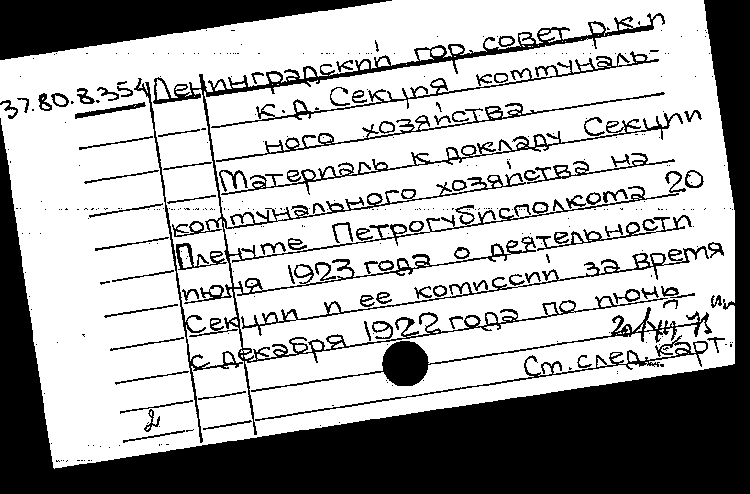 37.80.8.354 Ленинградский гор. совет р.к.п
к.д. Секция коммуналь-
ного хозяйства.
Материаль к докладу Секции
коммунального хозяйства на
Пленуме Петрогубисполкома 20
июня 1923 года о деятельности
Секции и ее комиссий за время
с декабря 1922 года по июнь
Ст. след. карт.
2